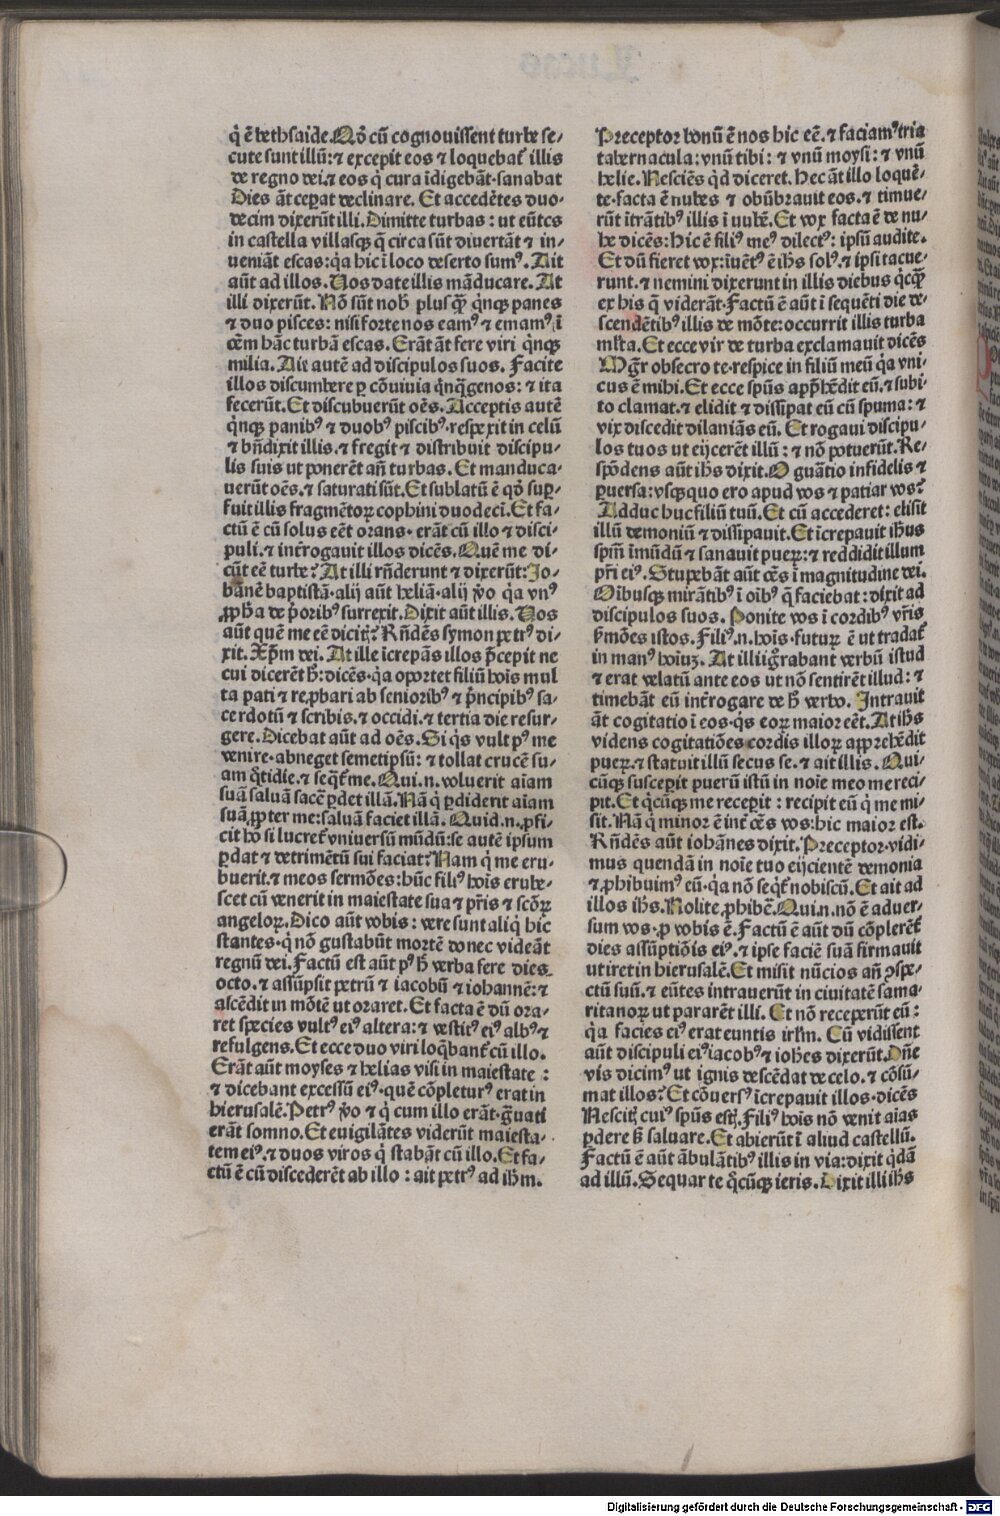 q̇ ē bethsaide. Qđ cū cognouissent turbe se-
cute sunt illū: ⁊ excepit eos ⁊ loquebat᷑ illis
de regno dei. ⁊ eos q̇ cura īdigebāt·sanabat
Dies āt ceꝑat declinare. Et accedētes duo-
decim dixerūt illi. Dimitte turbas: ut eūtes
in castella villasqꝫ q̄ circa sūt diuertāt ⁊ in-
ueniāt escas: qa hic ī loco deserto sumꝰ. Ait
aūt ad illos. Uos date illis māducare. At
illi dixerūt. Nō sūt nob̄ plusqꝫ qnqꝫ panes
⁊ duo pisces: nisi forte nos eamꝰ ⁊ emamꝰ ī
oēm hāc turbā escas. Erāt āt fere viri qnqꝫ
milia. Ait autē ad discipulos suos. Facite
illos discumbere ꝑ cōuiuia qnqgenos: ⁊ ita
fecerūt. Et discubuerūt oēs. Acceptis autē
qnqꝫ panibꝰ ⁊ duobꝰ piscibꝰ·respexit in celū
⁊ bn̄dixit illis. ⁊ fregit ⁊ distribuit discipu-
lis suis ut ponerēt an̄ turbas. Et manduca-
uerūt oēs. ⁊ saturati sūt. Et sublatū ē qđ suꝑ-
fuit illis fragmētoꝝ cophini duodecī. Et fa-
ctū ē cū solus eēt orans· erāt cū illo ⁊ disci-
puli. ⁊ int̄rogauit illos dicēs. Quē me di-
cūt eē turbe? At illi rn̄derunt ⁊ dixerūt: Jo-
hānē baptistā·alij aūt heliā·alij v̊o qa vnꝰ
ꝓph̄a de p̄oribꝰ surrexit. Dixit aūt illis. Uos
aūt quē me eē dicitꝭ? Rn̄dēs symon petrꝰ di-
xit. Xp̄m dei. At ille īcrepās illos p̄cepit ne
cui dicerēt h̄: dicēs·qa oportet filiū hoīs mul
ta pati ⁊ reꝓbari ab senioribꝰ ⁊ p̄ncipibꝰ sa-
cerdotū ⁊ scribis. ⁊ occidi. ⁊ tertia die resur-
gere. Dicebat aūt ad oēs. Si qs vult pꝰ me
venire·abneget semetipsū: ⁊ tollat crucē su-
am qtidie. ⁊ seqt᷑ me. Qui.n.voluerit aīam
suā saluā facē ꝑdet illā. Nā q̇ ꝑdiderit aīam
suā ꝓpter me: saluā faciet illā. Quid.n.ꝓfi-
cit hō si lucret᷑ vniuersū mūdū: se autē ipsum
ꝑdat ⁊ detrimētū sui faciat? Nam q̇ me eru-
buerit. ⁊ meos sermōes: hūc filiꝰ hoīs erube-
scet cū venerit in maiestate sua ⁊ pr̄is ⁊ scōꝝ
angeloꝝ. Dico aūt vobis: vere sunt aliq̇ hic
stantes·q̇ nō gustabūt mortē donec videāt
regnū dei. Factū est aūt pꝰ h̄ verba fere dies
octo. ⁊ assūpsit petrū ⁊ iacobū ⁊ iohannē: ⁊
ascēdit in mōtē ut oraret. Et facta ē dū ora-
ret species vultꝰ eiꝰ altera: ⁊ vestitꝰ eiꝰ albꝰ ⁊
refulgens. Et ecce duo viri loqbant᷑ cū illo.
Erāt aūt moyses ⁊ helias visi in maiestate:
⁊ dicebant excessū eiꝰ·quē cōpleturꝰ erat in
hierusalē. Petrꝰ v̊o ⁊ q̇ cum illo erāt·g̊uati
erāt somno. Et euigilātes viderūt maiesta-
tem eiꝰ. ⁊ duos viros q̇ stabāt cū illo. Et fa-
ctū ē cū discederēt ab illo: ait petrꝰ ad ih̄m.
Preceptor bonū ē nos hic eē. ⁊ faciamꝰ tria
tabernacula: vnū tibi: ⁊ vnū moysi: ⁊ vnū
helie. Nesciēs qd diceret. Hec āt illo loquē-
te·facta ē nubes ⁊ obūbrauit eos. ⁊ timue-
rūt ītrātibꝰ illis ī nubē. Et vox facta ē de nu-
be dicēs: hic ē filiꝰ meꝰ dilectꝰ: ipsū audite.
Et dū fieret vox: īuētꝰ ē ih̄s solꝰ. ⁊ ipsi tacue-
runt. ⁊ nemini dixerunt in illis diebus qcqꝫ
ex his q̄ viderāt. Factū ē aūt ī sequēti die de-
scendētibꝰ illis de mōte: occurrit illis turba
ml̄ta. Et ecce vir de turba exclamauit dicēs
Mg̅r obsecro te·respice in filiū meū qa vni-
cus ē mihi. Et ecce spūs appr̄hēdit eū. ⁊ subi-
to clamat. ⁊ elidit ⁊ dissipat eū cū spuma: ⁊
vix discedit dilaniās eū. Et rogaui discipu-
los tuos ut eijcerēt illū: ⁊ nō potuerūt. Re-
spōdens aūt ih̄s dixit. O gn̄atio infidelis ⁊
ꝑuersa: vsqꝫ quo ero apud vos ⁊ patiar vos?
Adduc huc filiū tuū. Et cū accederet: elisit
illū demoniū ⁊ dissipauit. Et īcrepauit ih̄us
spm̄ īmūdū ⁊ sanauit pueꝝ: ⁊ reddidit illum
pr̄i eiꝰ. Stupebāt aūt oēs ī magnitudine dei.
Oībusqꝫ mirātibꝰ ī oībꝰ q̄ faciebat: dixit ad
discipulos suos. Ponite vos ī cordibꝰ vr̄is
ẜmōes istos. Filiꝰ.n.hoīs·futuꝝ ē ut tradat᷑
in manꝰ hoīuꝫ. At illi ig̊rabant verbū istud
⁊ erat velatū ante eos ut nō sentirēt illud: ⁊
timebāt eū int̄rogare de h̄ verbo. Intrauit
āt cogitatio ī eos·qs eoꝝ maior eēt. At ih̄s
videns cogitatiōes cordis illoꝝ apprehēdit
pueꝝ. ⁊ statuit illū secus se. ⁊ ait illis. Qui-
cūqꝫ susceperit puerū istū in noīe meo me reci-
pit. Et qcūqꝫ me receperit: recipit eū q̇ me mi-
sit. Nā q̇ minor ē int̄ oēs vos: hic maior est.
Rn̄dēs aūt iohānes dixit. Preceptor·vidi-
mus quendā in noīe tuo eijcientē demonia
⁊ ꝓhibuimꝰ eū·qa nō seqt᷑ nobiscū. Et ait ad
illos ih̄s. Nolite ꝓhibē. Qui.n.nō ē aduer-
sum vos·ꝓ vobis ē. Factū ē aūt dū cōplerēt᷑
dies assūptiōis eiꝰ. ⁊ ipse faciē suā firmauit
ut iret in hierusalē. Et misit nūcios an̄ ꝯspe-
ctū suū. ⁊ eūtes intrauerūt in ciuitatē sama-
ritanoꝝ ut pararēt illi. Et nō receperūt eū:
qa facies eiꝰ erat euntis irl̄m. Cū vidissent
aūt discipuli eiꝰ iacobꝰ ⁊ ioh̄es dixerūt. Dn̄e
vis dicimꝰ ut ignis descēdat de celo. ⁊ cōsū-
mat illos? Et cōuersꝰ īcrepauit illos·dicēs
Nescitꝭ cuiꝰ spūs estꝭ. Filiꝰ hoīs nō venit aīas
ꝑdere ẜ saluare. Et abierūt ī aliud castellū.
Factū ē aūt ābulātibꝰ illis in via: dixit qdā
ad illū. Sequar te qcūqꝫ ieris. Dixit illi ih̄s
Digitalisierung gefördert durch die Deutsche Forschungsgemeinschaft - DFG